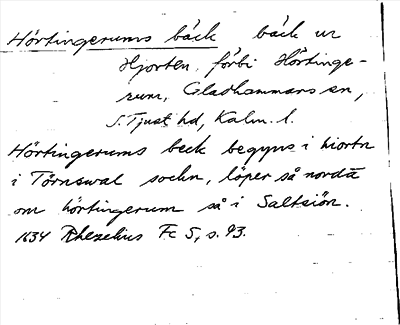 Hörtingerums bäck bäck ur
Hjorten, förbi Hörtinge-
rum, Gladhammars sn,
S. Tjust hd, Kalm. l.
Hörtingerums beck begyns i hiortn
i Törnswal sochn, löper så nordā
om hörtingerum så i Saltsiön.
1634 Rhezelius Fc 5, s. 93.